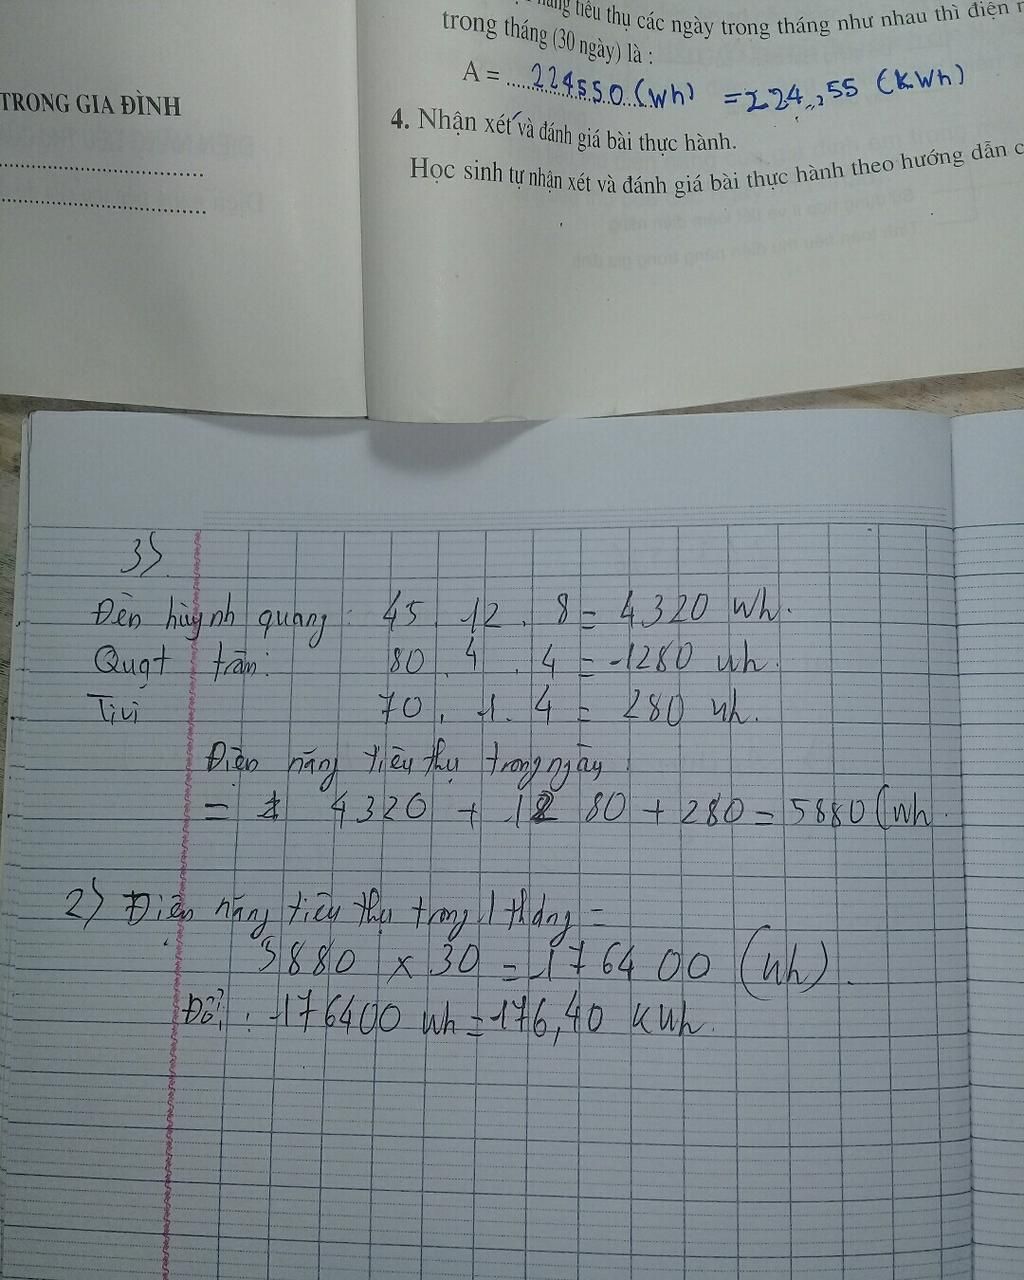 năng tiêu thụ các ngày trong tháng như nhau thì điện
trong tháng (30 ngày) là :
A = ...224550 (Wh) = 224,55 (KWh)
4. Nhận xét và đánh giá bài thực hành.
Học sinh tự nhận xét và đánh giá bài thực hành theo hướng dẫn
TRONG GIA ĐÌNH
3)
Đèn hùynh quang : 45 . 12 . 8 = 4320 Wh.
Quạt trần: 80 . 4 . 4 = 1280 wh.
Tivi 70 . 1 . 4 = 280 wh.
Điện năng tiêu thụ trong ngày
= 4320 + 1280 + 280 = 5880 (Wh
2) Điện năng tiêu thụ trong 1 tháng =
5880 x 30 = 176400 (wh).
Đổi : 176400 wh = 176,40 KWh.